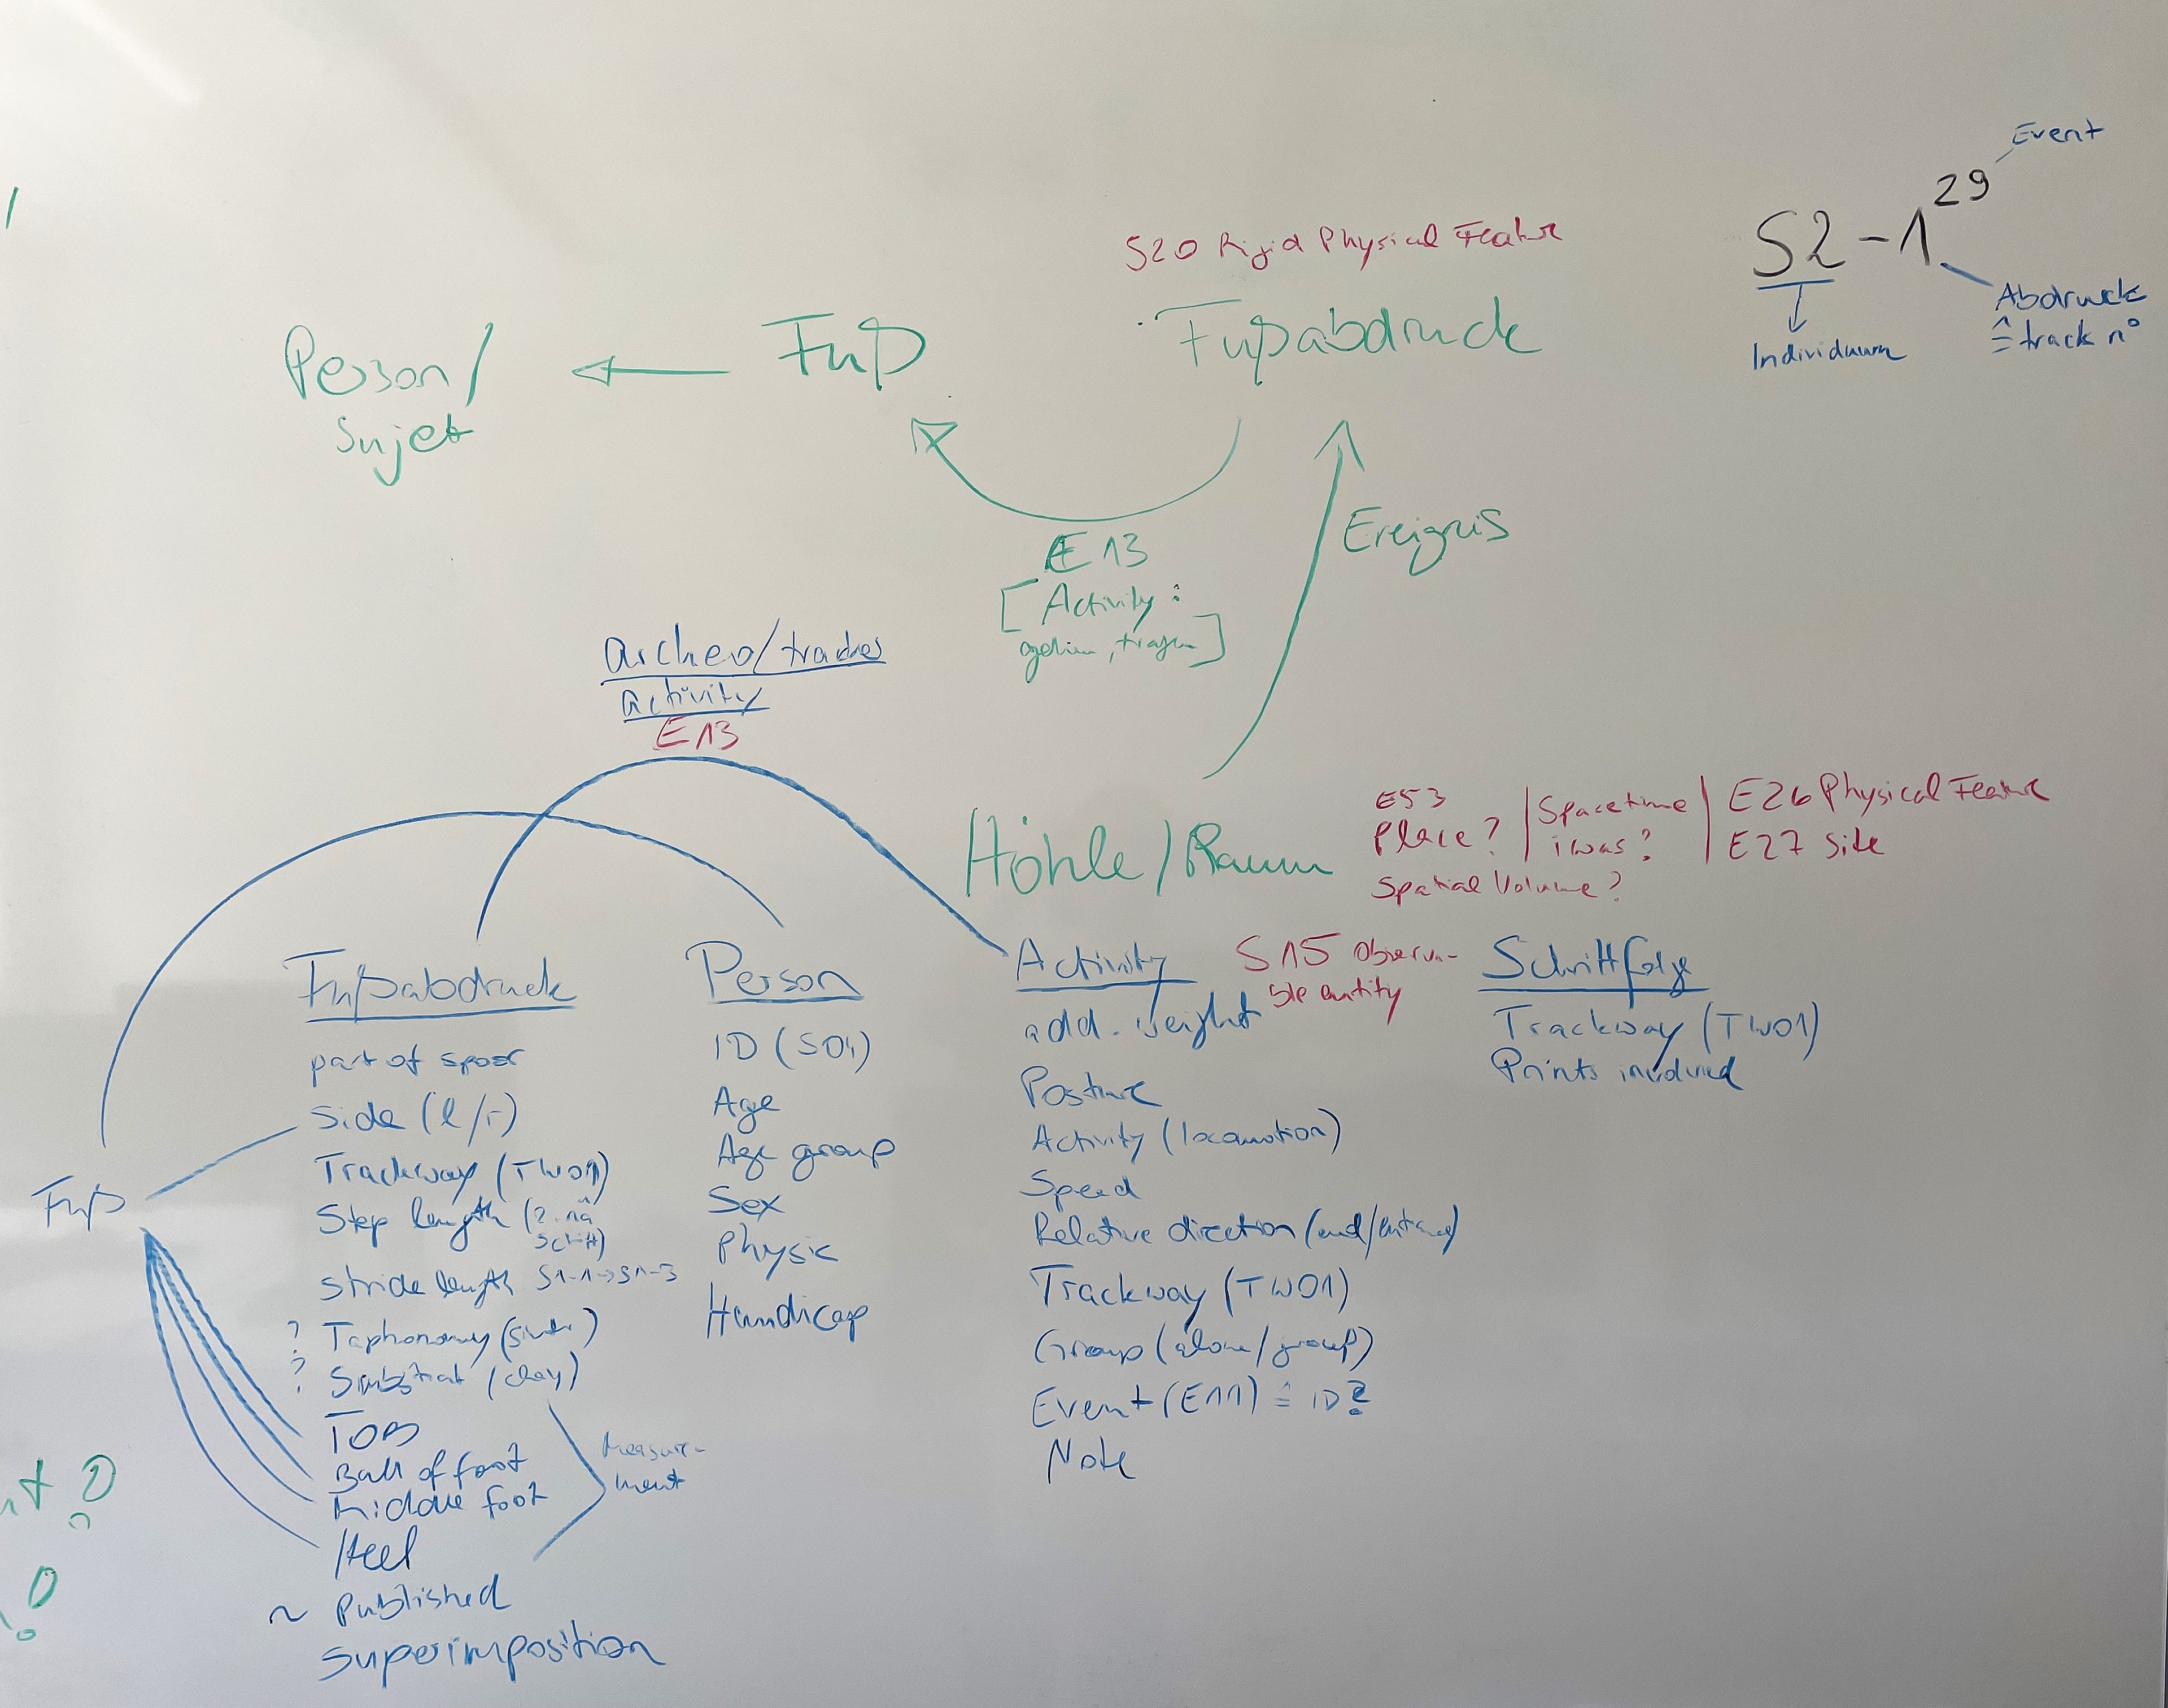 Event
S2-1²⁹
Individuum
Abdruck
≙ track n°
S20 Rigid Physical Feature
Person/
Sujet
Fuß
Fußabdruck
Ereignis
E13
[Activity:
gehen, tragen]
Archeo/tracker
activity
E13
Höhle/Raum
E53
Place?
Spatial Volume?
Spacetime
iwas?
E26 Physical Feature
E27 Site
Fuß
Fußabdruck
part of spoor
Side (l/r)
Trackway (TW01)
Step length (z. nä
Schritt)
Stride length S1-1->S1-3
? Taphonomy (sinter)
? Substrat (clay)
Ball of foot
Middle foot
Heel
~ Published
Superimposition
Measure-
ment
Person
ID (S01)
Age
Age group
Sex
Physic
Handicap
Activity
S15 Observa-
ble entity
add. weight
Posture
Activity (locomotion)
Speed
Relative direction (end/entrance)
Trackway (TW01)
Group (alone/group)
Event (E11) ≙ ID?
Note
Schrittfolge
Trackway (TW01)
Prints involved